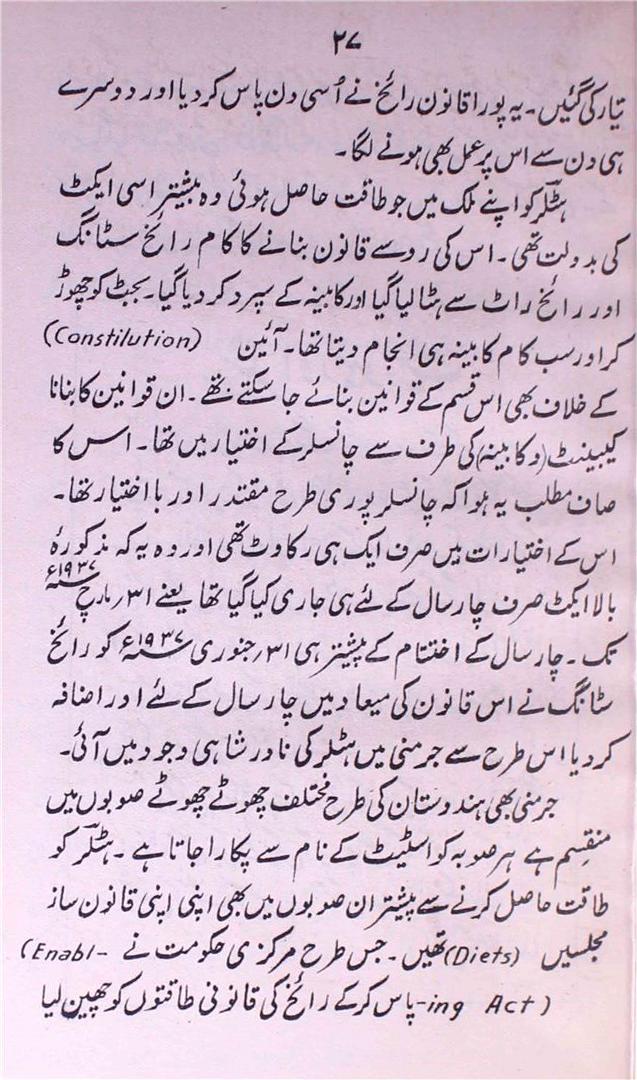 ۲۷
تیار کی گئیں۔ یہ پورا قانون رائخ نے اُسی دن پاس کر دیا اور دوسرے
ہی دن سے اس پر عمل بھی ہونے لگا۔
ہٹلر کو اپنے ملک میں جو طاقت حاصل ہوئی وہ بیشتر اسی ایکٹ
کی بدولت تھی۔ اس کی رو سے قانون بنانے کا کام رائخ سٹانگ
اور رائخ راٹ سے ہٹا لیا گیا اور کابینہ کے سپرد کر دیا گیا۔ بجٹ کو چھوڑ
کر اور سب کام کابینہ ہی انجام دیتا تھا۔ آئین (Constilution)
کے خلاف بھی اس قسم کے قوانین بنائے جا سکتے تھے۔ ان قوانین کا بنانا
کیبینٹ (وکابینہ) کی طرف سے چانسلر کے اختیار میں تھا۔ اس کا
صاف مطلب یہ ہوا کہ چانسلر پوری طرح مقتدر اور بااختیار تھا۔
اس کے اختیارات میں صرف ایک ہی رکاوٹ تھی اور وہ یہ کہ مذکورہٴ
بالا ایکٹ صرف چار سال کے لئے ہی جاری کیا گیا تھا یعنے ۳۱؍ مارچ ۱۹۳۷ء
تک۔ چار سال کے اختتام کے پیشتر ہی ۳۱؍ جنوری ۱۹۳۷ء کو رائخ
سٹانگ نے اس قانون کی میعاد میں چار سال کے لئے اور اضافہ
کر دیا اس طرح سے جرمنی میں ہٹلر کی نادر شاہی وجود میں آئی۔
جرمنی بھی ہندوستان کی طرح مختلف چھوٹے چھوٹے صوبوں میں
منقسم ہے ہر صوبہ کو اسٹیٹ کے نام سے پکارا جاتا ہے۔ ہٹلر کو
طاقت حاصل کرنے سے پیشتر ان صوبوں میں بھی اپنی اپنی قانون ساز
مجلسیں (Diets) تھیں۔ جس طرح مرکزی حکومت نے (Enabl-
-ing Act) پاس کر کے رائخ کی قانونی طاقتوں کو چھین لیا